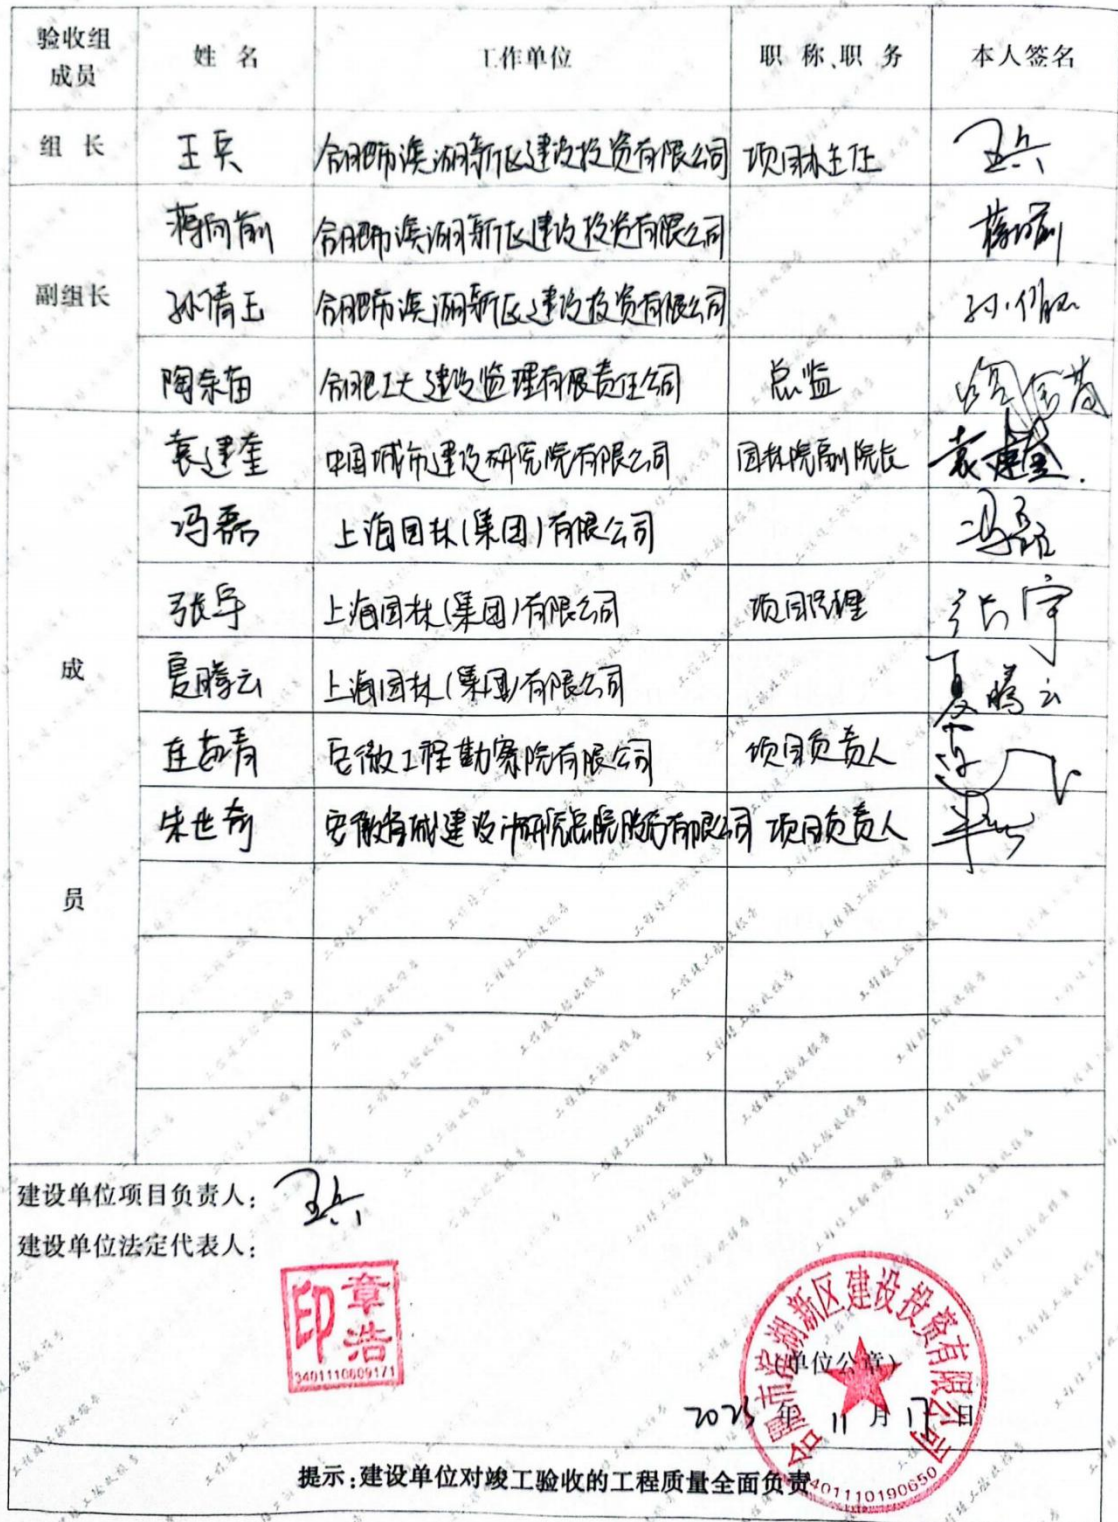 验收组成员 姓名 工作单位 职称、职务 本人签名
组长 王兵 合肥市滨湖新区建设投资有限公司 项目办主任 王兵
副组长 蒋向前 合肥市滨湖新区建设投资有限公司 蒋向前
孙倩玉 合肥市滨湖新区建设投资有限公司
陶余苗 合肥工大建设监理有限责任公司 总监
成员 袁建奎 中国城市建设研究院有限公司 园林院副院长 袁建奎
冯磊 上海园林(集团)有限公司 冯磊
张宇 上海园林(集团)有限公司 项目经理 张宇
夏腾云 上海园林(集团)有限公司 夏腾云
安徽工程勘察院有限公司 项目负责人
朱世奇 安徽省城建设计研究总院股份有限公司 项目负责人
建设单位项目负责人： 王兵
建设单位法定代表人：
章浩印
3401110609171
合肥市滨湖新区建设投资有限公司
(单位公章)
2023年11月17日
3401110190650
提示:建设单位对竣工验收的工程质量全面负责
工程竣工验收报告